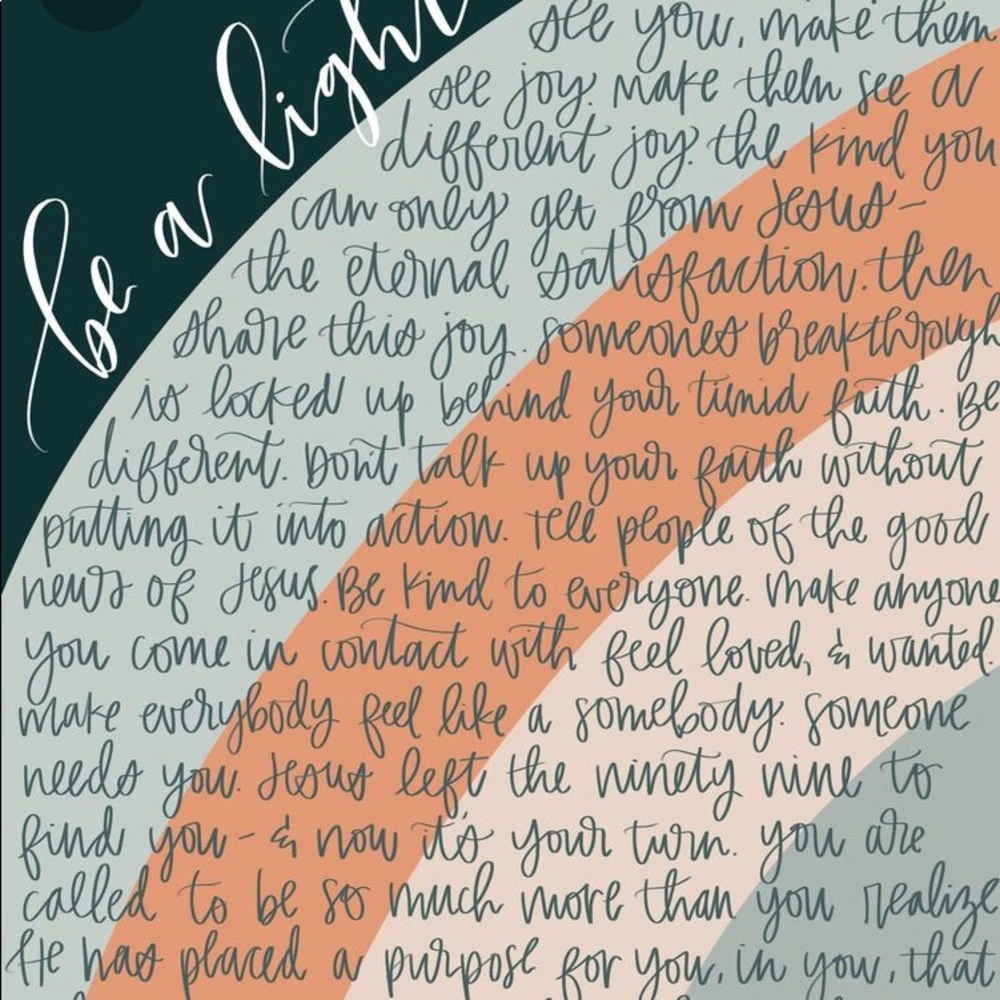 be a light
see you, make them
see joy. make them see a
different joy. the kind you
can only get from Jesus-
the eternal satisfaction. then
share this joy. someones breakthrough
is locked up behind your timid faith. Be
different. Don't talk up your faith without
putting it into action. Tell people of the good
news of Jesus. Be kind to everyone. Make anyone
you come in contact with feel loved, & wanted.
make everybody feel like a somebody. Someone
needs you. Jesus left the ninety nine to
find you - & now it's your turn. you are
called to be so much more than you realize
He has placed a purpose for you, in you, that